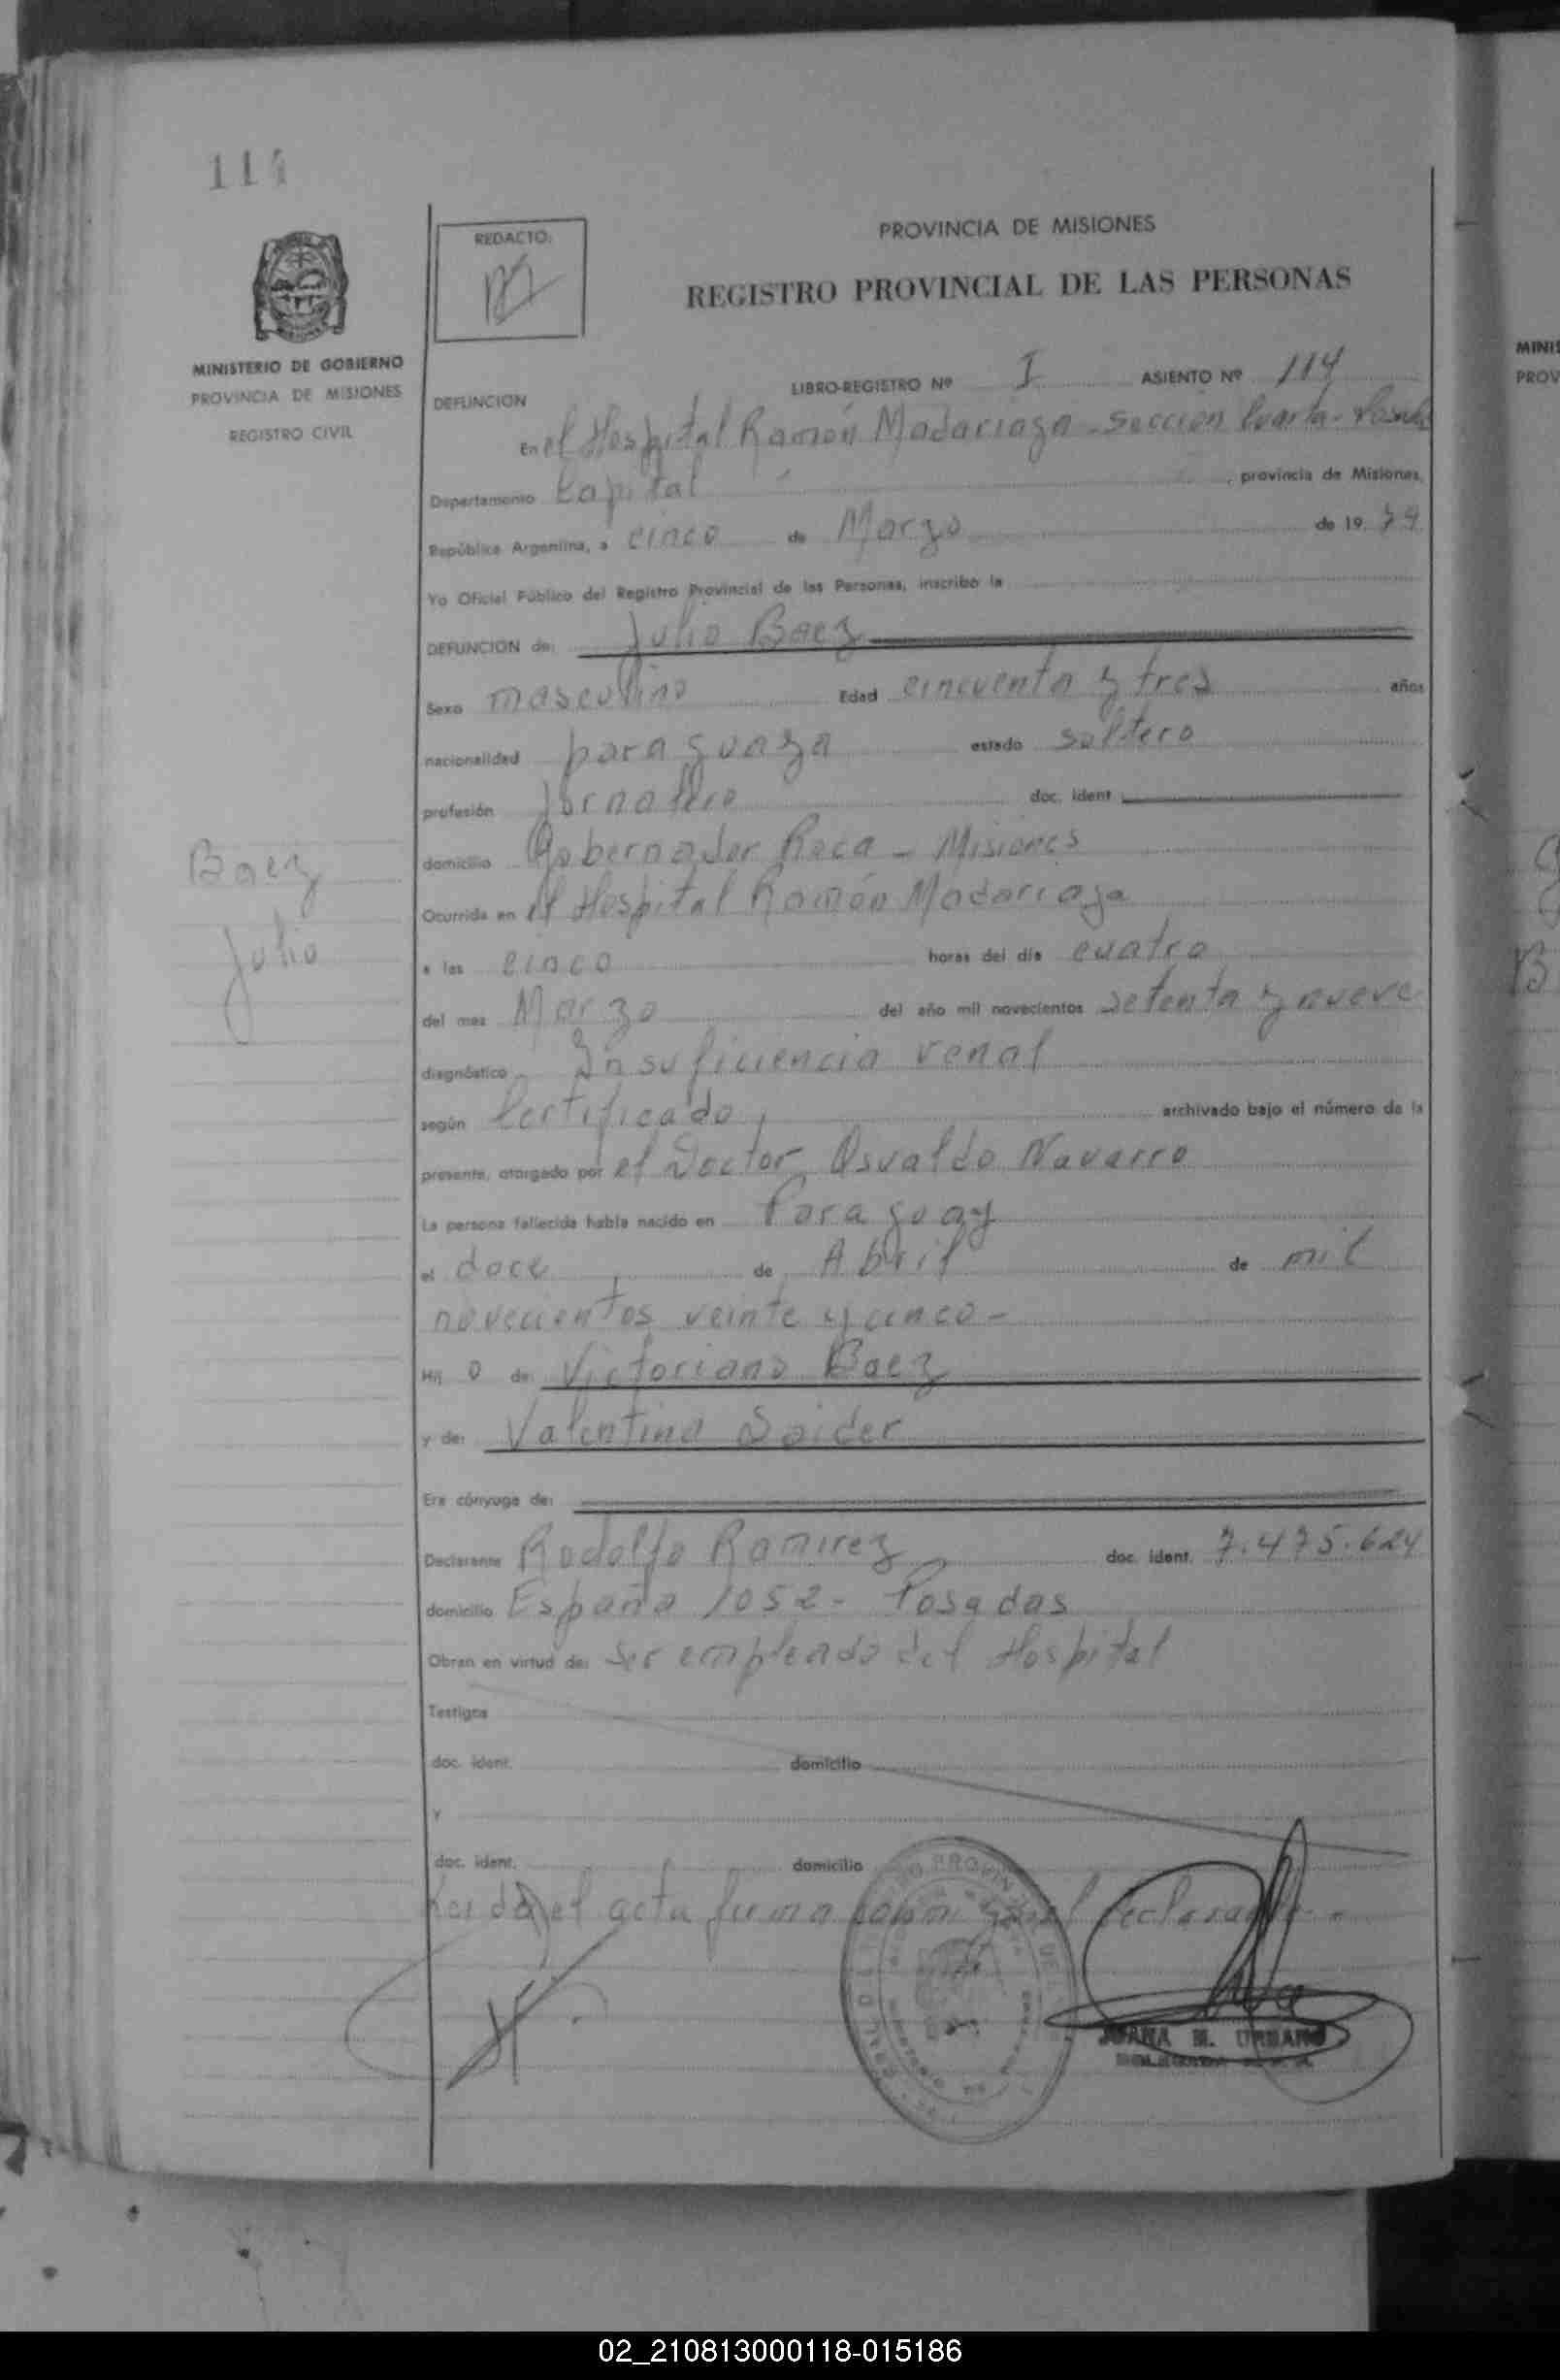 114
REDACTO:
PROVINCIA DE MISIONES
REGISTRO PROVINCIAL DE LAS PERSONAS
MINISTERIO DE GOBIERNO
PROVINCIA DE MISIONES
REGISTRO CIVIL
LIBRO-REGISTRO Nº I ASIENTO Nº 114
DEFUNCION
En el Hospital Ramón Madariaga - Sección Cuarta - Posadas
Departamento Capital, provincia de Misiones,
República Argentina, a cinco de Marzo de 19 79
Yo Oficial Público del Registro Provincial de las Personas, inscribo la
DEFUNCION de: Julio Baez
Sexo masculino Edad cincuenta y tres años
nacionalidad paraguaya estado soltero
profesión Jornalero doc. ident.
domicilio Gobernador Roca - Misiones
Baez
Ocurrida en el Hospital Ramón Madariaga
Julio
a las cinco horas del día cuatro
del mes Marzo del año mil novecientos setenta y nueve
diagnóstico Insuficiencia renal
según Certificado, archivado bajo el número de la
presente, otorgado por el Doctor Osvaldo Navarro
La persona fallecida había nacido en Paraguay
el doce de Abril de mil
novecientos veinte y cinco -
Hij o de: Victoriano Baez
y de: Valentina Soider
Era cónyuge de:
Declarante Rodolfo Ramirez doc. ident. 7.475.624
domicilio España 1052 - Posadas
Obran en virtud de: ser empleado del Hospital
Testigos
doc. ident. domicilio
y
doc. ident. domicilio
Leida el acta firma el declarante.-
JUANA M. URBANO
MINI
PROV
02_210813000118-015186